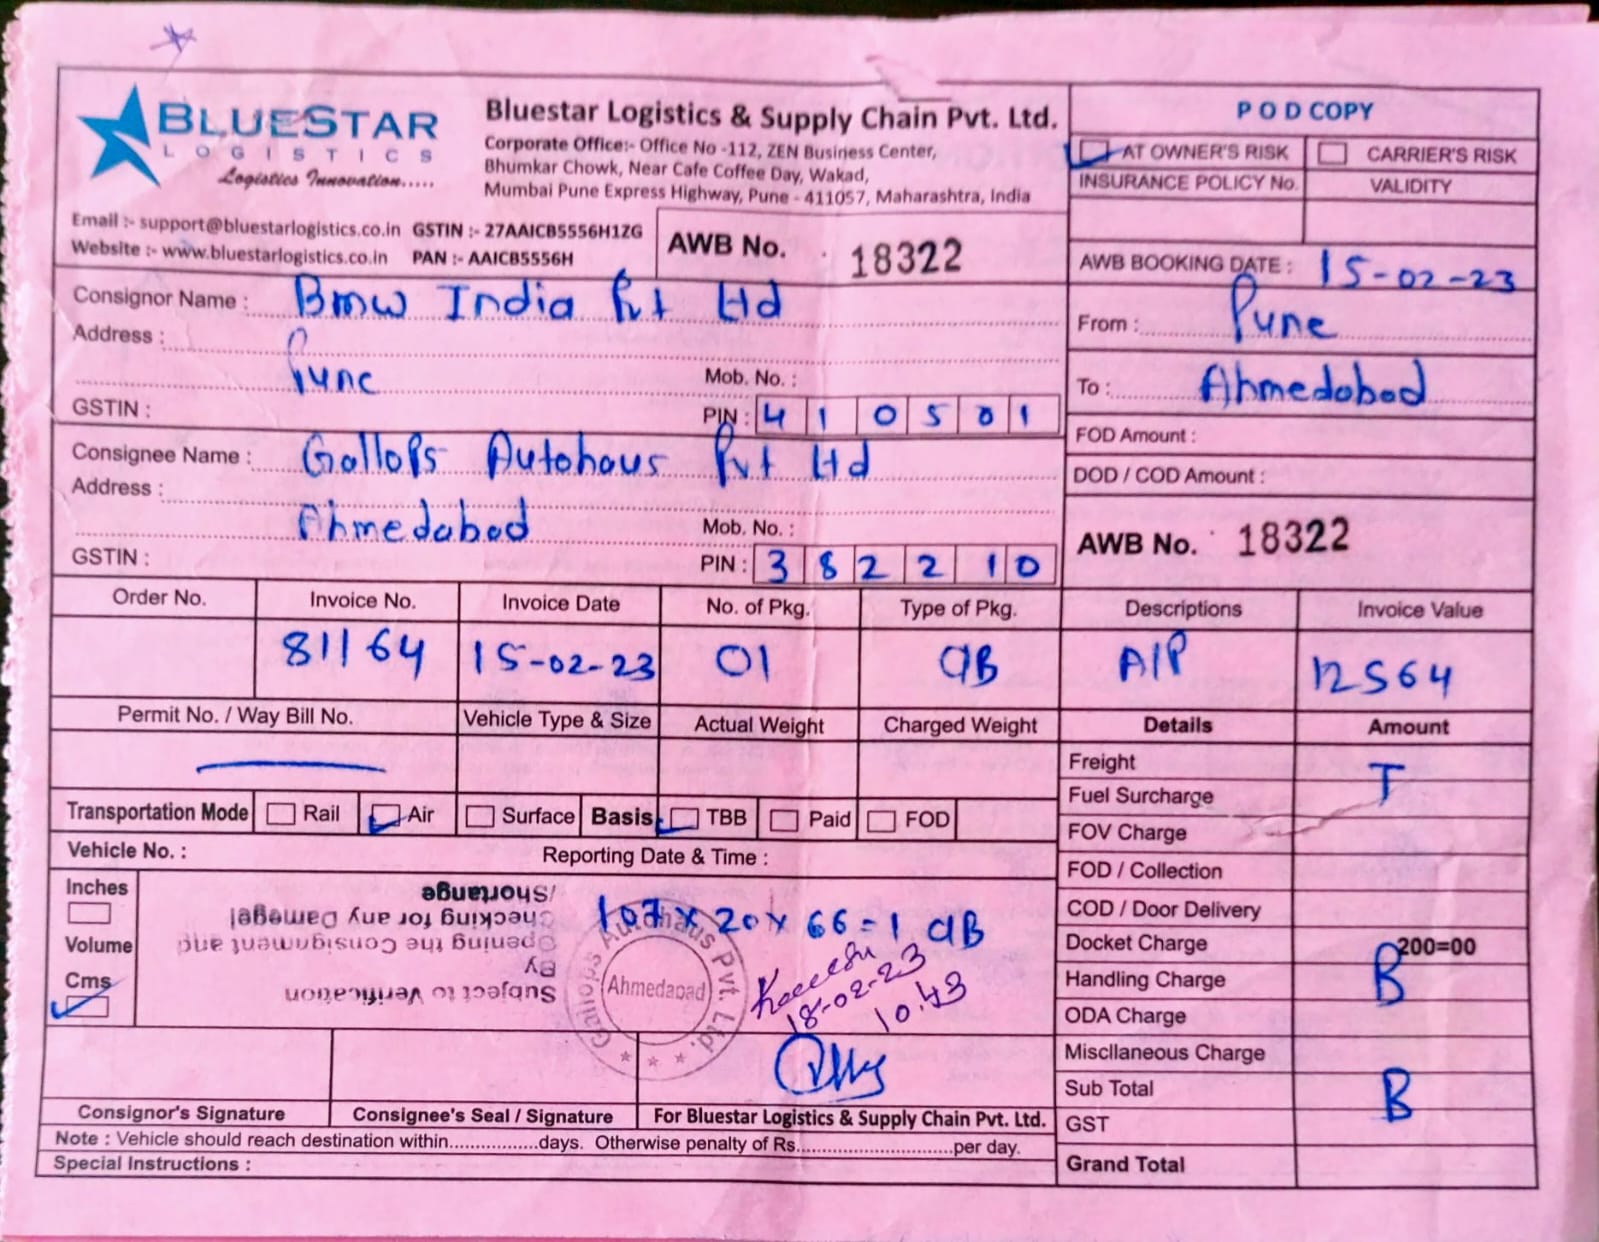 BLUESTAR
LOGISTICS
Logistics Innovation.....
Bluestar Logistics & Supply Chain Pvt. Ltd.
Corporate Office:- Office No -112, ZEN Business Center,
Bhumkar Chowk, Near Cafe Coffee Day, Wakad,
Mumbai Pune Express Highway, Pune - 411057, Maharashtra, India
Email :- support@bluestarlogistics.co.in GSTIN :- 27AAICB5556H1ZG
Website :- www.bluestarlogistics.co.in PAN :- AAICB5556H
AWB No. 18322
POD COPY
AT OWNER'S RISK CARRIER'S RISK
INSURANCE POLICY No. VALIDITY
AWB BOOKING DATE : 15-02-23
From : Pune
To : Ahmedabad
FOD Amount :
DOD / COD Amount :
AWB No. 18322
Consignor Name : Bmw India Pvt Ltd
Address :
Pune Mob. No. :
GSTIN : PIN : 410501
Consignee Name : Gallops Autohaus Pvt Ltd
Address :
Ahmedabad Mob. No. :
GSTIN : PIN : 382210
Order No. Invoice No. Invoice Date No. of Pkg. Type of Pkg. Descriptions Invoice Value
81164 15-02-23 01 CIB A/P 12564
Permit No. / Way Bill No. Vehicle Type & Size Actual Weight Charged Weight Details Amount
Freight
T
Fuel Surcharge
FOV Charge
FOD / Collection
COD / Door Delivery
Docket Charge 200=00
Handling Charge B
ODA Charge
Miscllaneous Charge
Sub Total B
GST
Grand Total
Transportation Mode Rail Air Surface Basis TBB Paid FOD
Vehicle No. : Reporting Date & Time :
Inches
Volume
Cms
107 x 20 x 66 = 1 CIB
Subject to Verification
By
Opening the Consignment and
Checking for any Damage/
/Shortange
Gallops Autohaus Pvt. Ltd.
Ahmedabad
18-02-23
10.43
Consignor's Signature Consignee's Seal / Signature For Bluestar Logistics & Supply Chain Pvt. Ltd.
Note : Vehicle should reach destination within.................days. Otherwise penalty of Rs.............................per day.
Special Instructions :